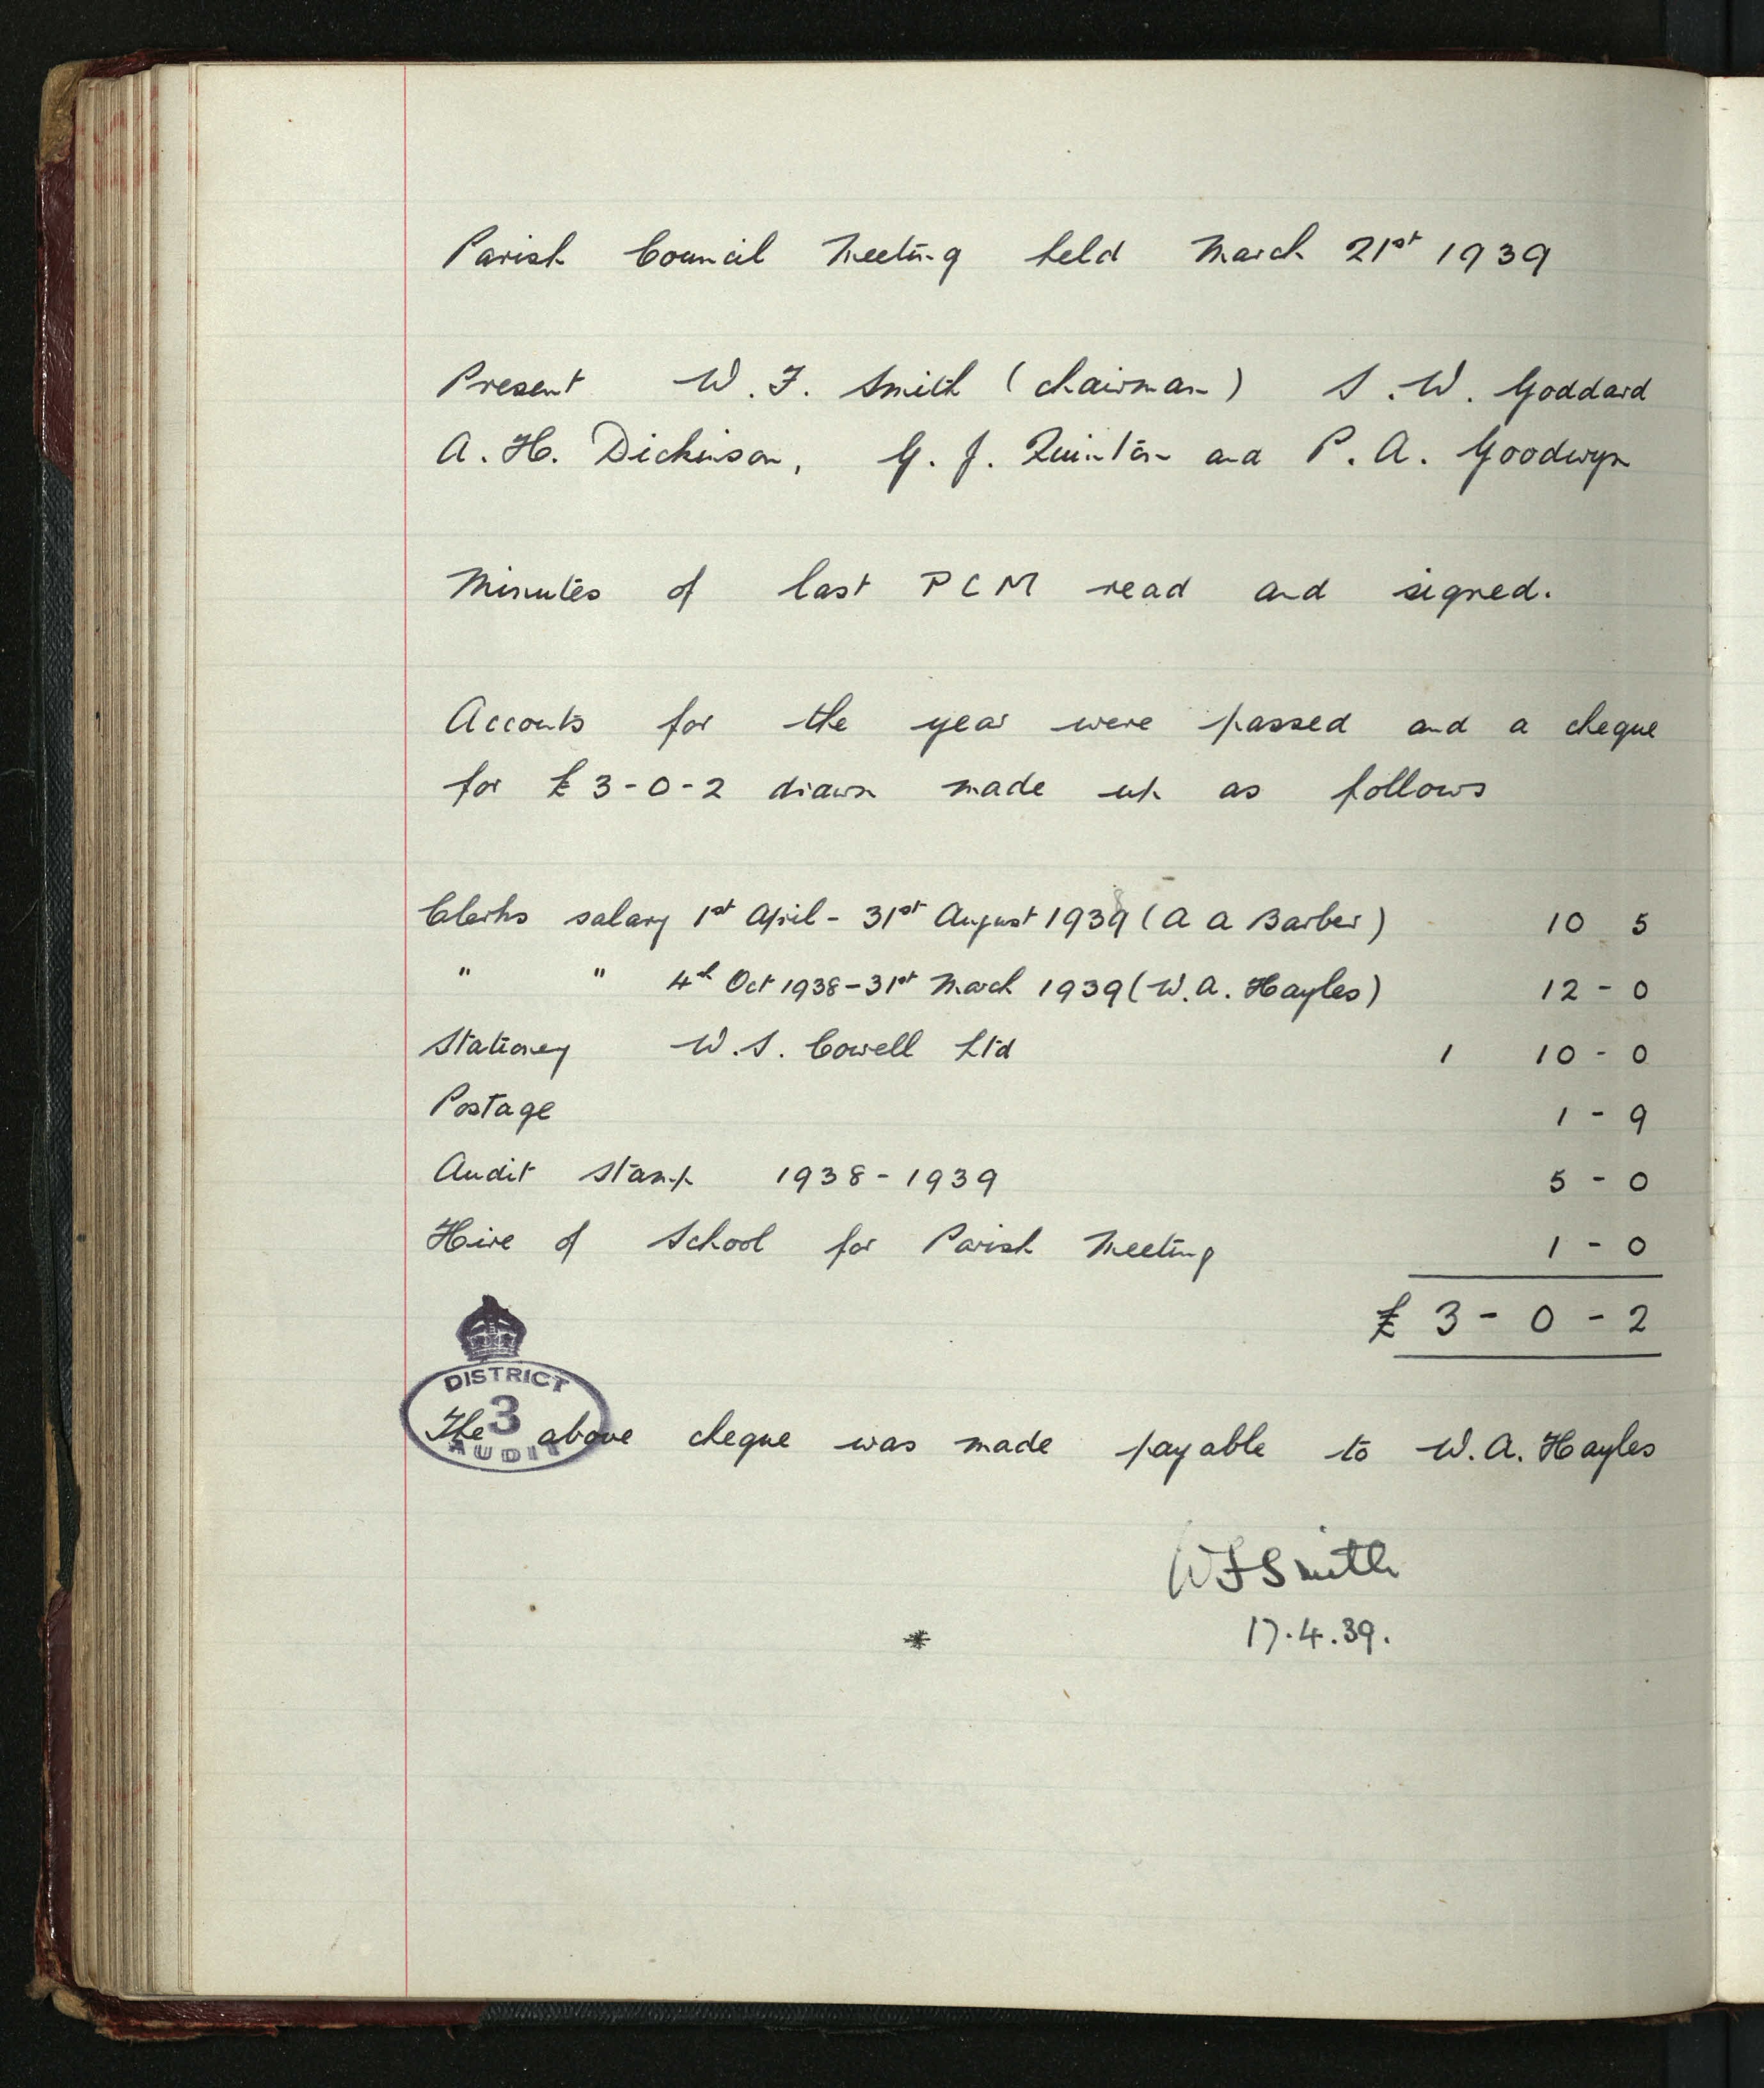 Parish Council Meeting held March 21st 1939
Present W. F. Smith (chairman) S. W. Goddard
A. H. Dickinson, G. J. Quinton and P. A. Goodwyn
Minutes of last PCM read and signed.
Accounts for the year were passed and a cheque
for £3-0-2 drawn made up as follows
Clerks salary 1st April - 31st August 1938 (A A Barber) 10 5
" " 4th Oct 1938 - 31st March 1939 (W. A. Hayles) 12 - 0
Stationey W. S. Cowell Ltd 1 10 - 0
Postage 1 - 9
Audit Stamp 1938 - 1939 5 - 0
Hire of School for Parish Meeting 1 - 0
£ 3 - 0 - 2
DISTRICT
3
AUDIT
The above cheque was made payable to W. A. Hayles
WFSmith
17.4.39.
*